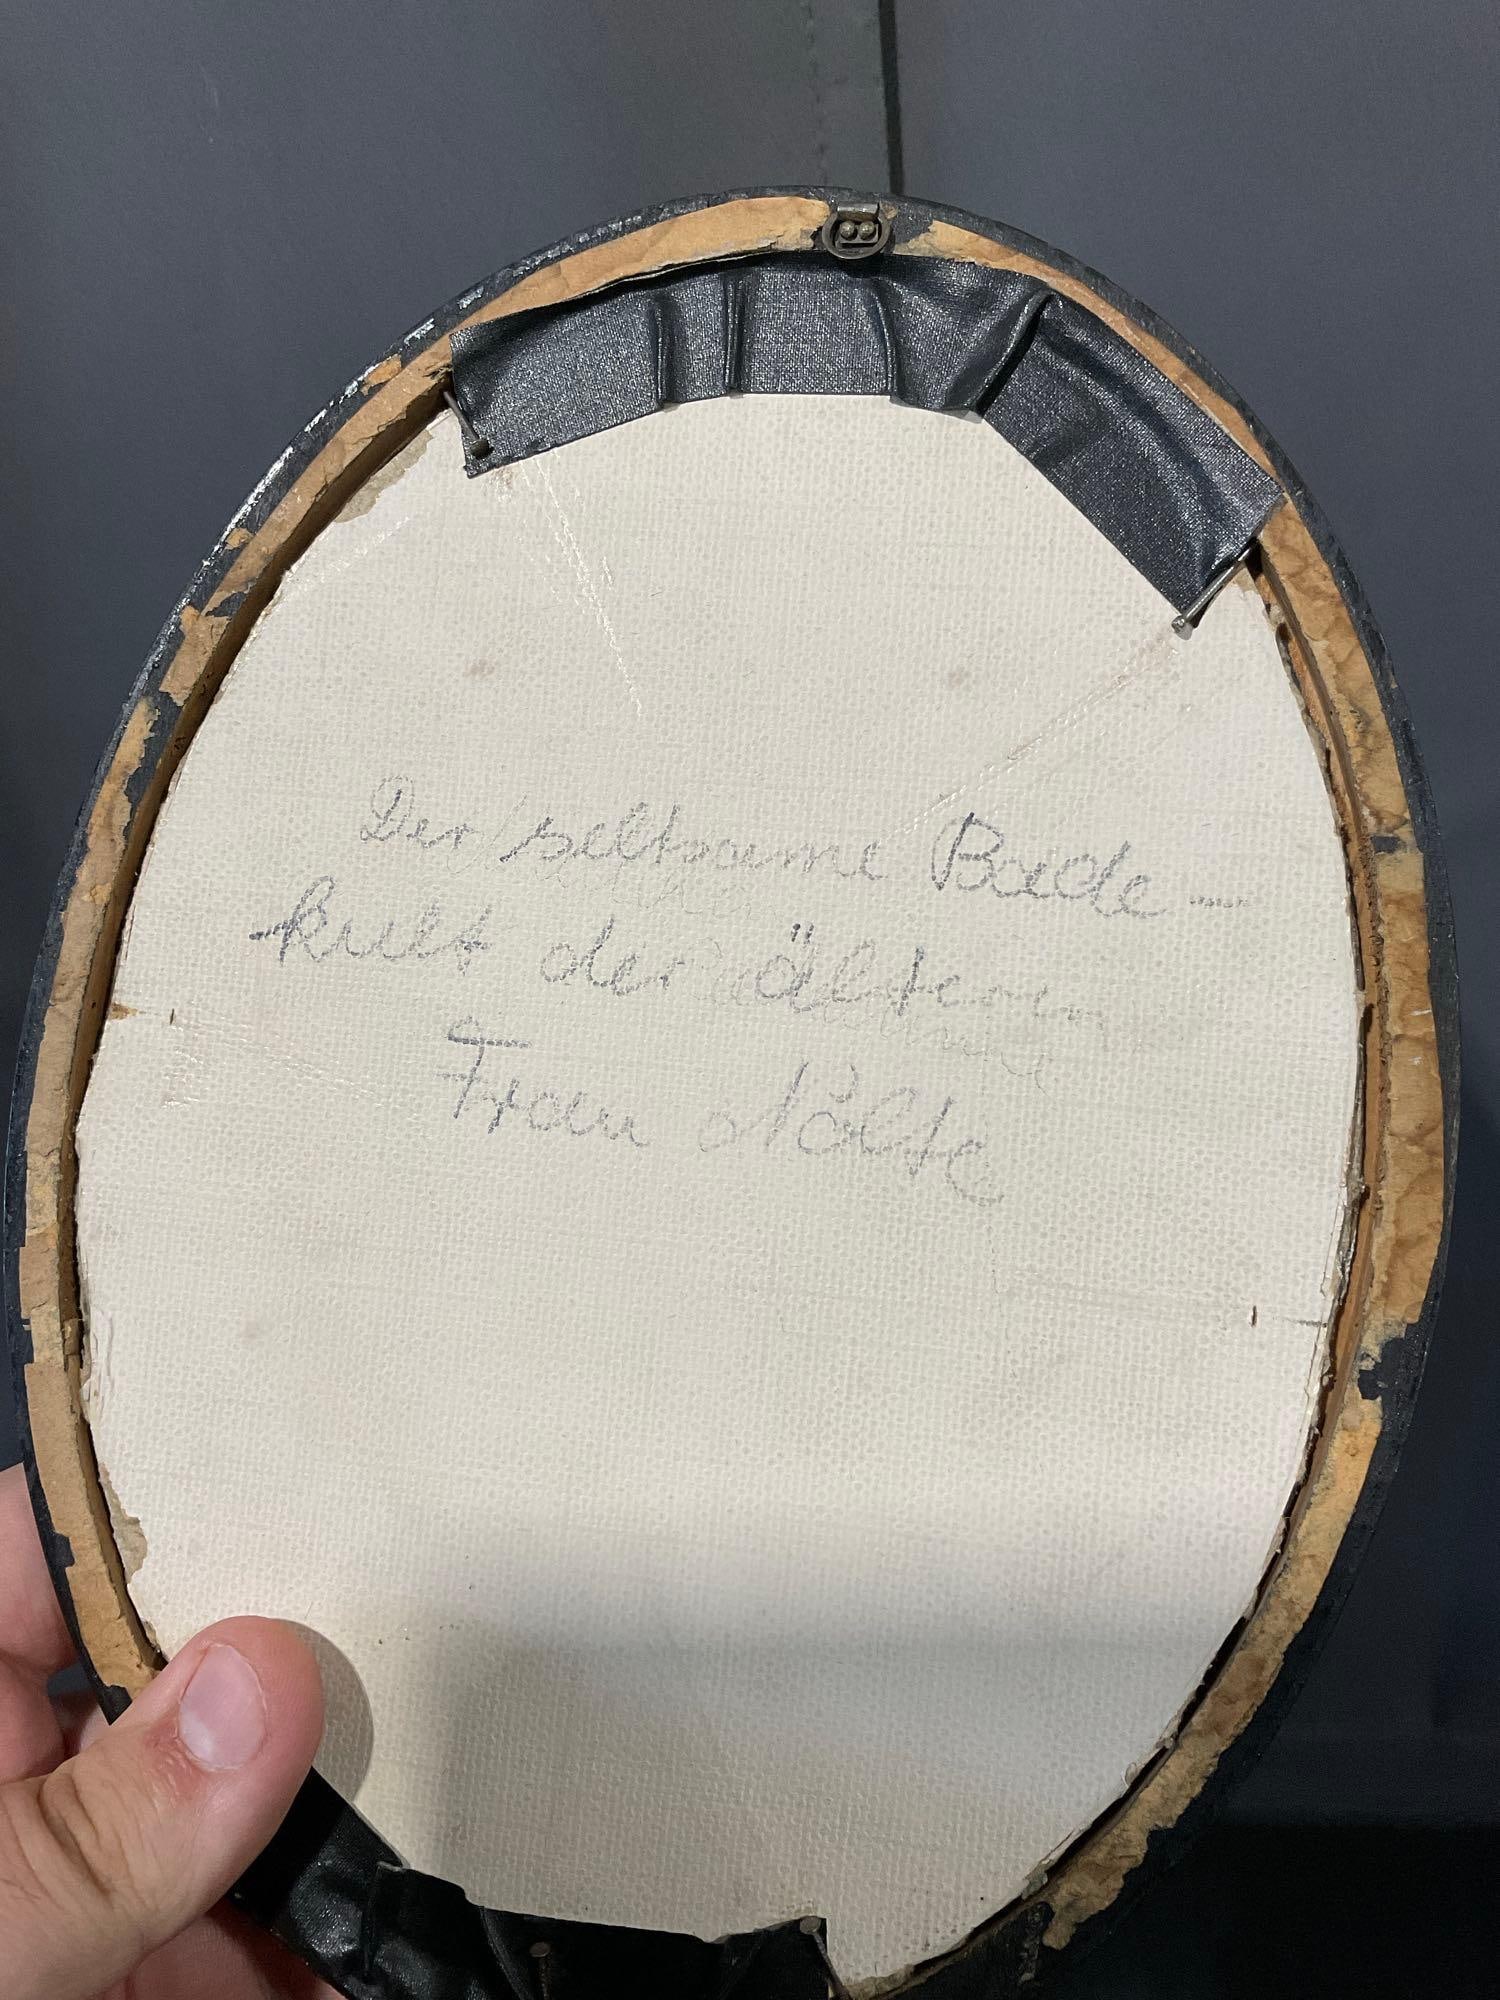 Der seltsame Bade-
kult der älteren
Frau Nölte